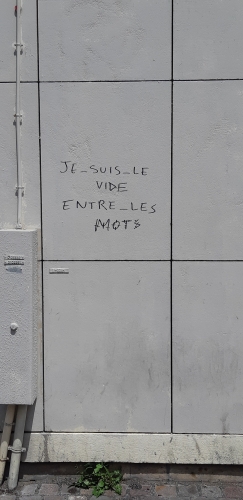 JE_SUIS_LE
VIDE
ENTRE_LES
MOTS